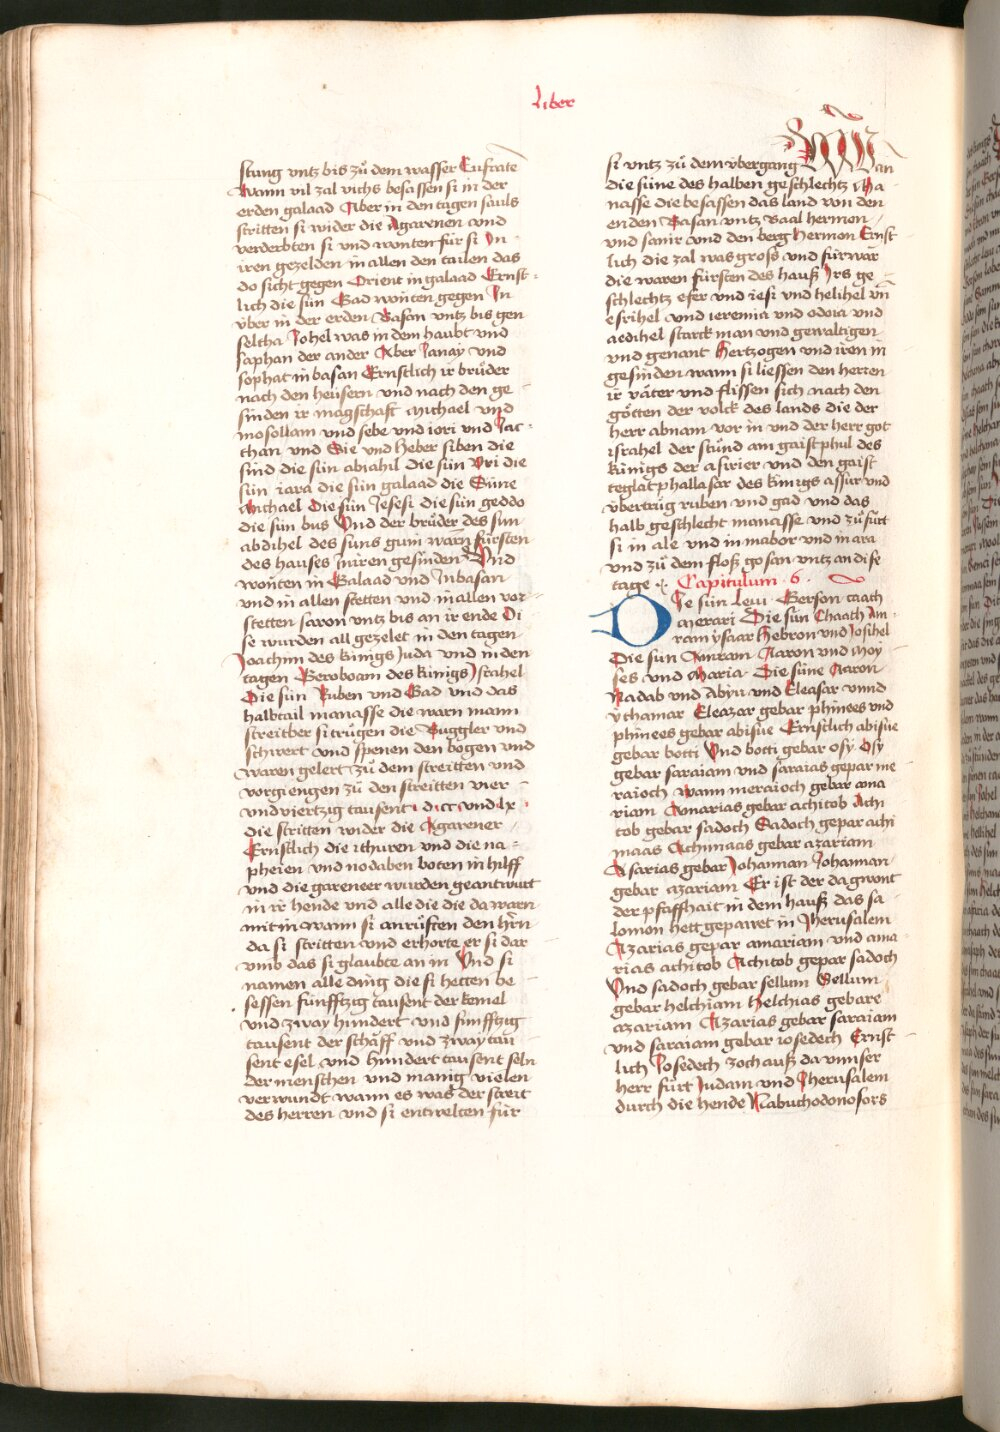 Liber
stung vntz bis zů dem wasser Eufrate
Wann vil zal vichs besassen si in der
erden galaad Aber in den tagen sauls
stritten si wider die Agarenen vnd
verderbten si vnd wonten für si In
iren gezelden in allen den tailen das
do sicht gegen Orient in galaad Ernst-
lich die sün Gad wonten gegen In
vber in der erden Basan vntz bis gen
seltha Johel was in dem haubt vnd
saphan der ander Aber Janay vnd
sophat in basan Ernstlich ir brůder
nach den heüsern vnd nach den ge
sinden ir magschaft Michael vnd
mosollam vnd sebe vnd iori vnd Jac-
chan vnd Sie vnd Heber siben die
sind die sün abiahil die sün Vri die
sün iara die sün galaad die Süne
Michael Die sün Jesesi die sün geddo
die sün bus Vnd der brůder des sun
abdihel des suns guni warn fürsten
des hauses in iren gesinden Vnd
wonten in Galaad vnd In basan
vnd in allen stetten vnd in allen vor-
stetten saron vntz bis an ir ende Di
se wurden all gezelet in den tagen
Joachim des künigs Juda vnd in den
tagen Geroboam des künigs Israhel
Die sün Ruben vnd Gad vnd das
halbtail manasse die warn mann
streitber si trůgen die Buggler vnd
schwert vnd spenen den bogen vnd
waren gelert zů dem streitten vnd
vorgiengen zů den streitten vier
vnd viertzig tausent · dcc vnd lx ·
die stritten wider die Agarener
Ernstlich die ithuren vnd die na-
pheien vnd nodaben boten in hilff
vnd die gareneer wurden geantwurt
in ir hende vnd alle die die da warn
mit in wann si anrůften den hern
da si stritten vnd erhorte er si dar
vmb das si glaubte an in Vnd si
namen alle ding die si hetten be
sessen fünfftzig tausent der kemel
vnd zway hundert vnd fünfftzig
tausent der schäff vnd zway tau
sent esel vnd hundert tausent seln
der menschen vnd manig vielen
verwundt wann es was der streit
des herren vnd si entwelten für
si vntz zů dem vbergang Wan
die süne des halben geschlechtz Ma
nasse die besassen das land von den
enden Basan vntz Baal hermon
vnd sanir vnd den berg Hermon Ernst
lich die zal was gross vnd fürwar
die waren fürsten des hauß Irs ge
schlechtz efer vnd iesi vnd helihel vn
esrihel vnd ieremia vnd odoia vnd
aedihel starck man vnd gewaltigen
vnd genant Hertzogen vnd iren in
gesinden wann si liessen den herren
ir väter vnd flissen sich nach den
götten der volck des lands die der
herr abnam vor in vnd der herr got
israhel der stůnd am gaist phul des
künigs der asirier vnd den gaist
teglat phallasar des künigs assur vnd
vbertrůg ruben vnd gad vnd das
halb geschlecht manasse vnd zůfürt
si in ale vnd in mabor vnd in ara
vnd zů dem floß gosan vntz an dise
tage · Capitulum · 6 ·
Die sün Leui Gerson caath
merari Die sün Chaath Am-
ram ysaar Hebron vnd Josihel
Die sün Amram Aaron vnd Moy
ses vnd Maria Die süne Aaron
Nadab vnd Abyu vnd Eleasar vnnd
ythamar Eleazar gebar phinees vnd
phinees gebar abisue Ernstlich abisue
gebar botti Vnd botti gebar osy Osy
gebar saraiam vnd saraias gepar me
raioch Wann meraioch gebar ama
riam Amarias gebar achitob Achi
tob gebar sadoch Sadoch gepar achi
maas Achimaas gebar azariam
Asarias gebar Johannan Johannan
gebar azariam Er ist der da gwont
der pfaffhait in dem hauß das sa
lomon hett gepawet in Jherusalem
Azarias gepar amariam vnd ama
rias achitob Achitob gepar sadoch
Vnd sadoch gebar sellum Sellum
gebar helchiam Helchias gebare
azariam Azarias gebar saraiam
vnd saraiam gebar iosedech Ernst
lich Josedech zoch auß da vnnser
herr fürt Judam vnd Jherusalem
durch die hende Nabuchodonosors